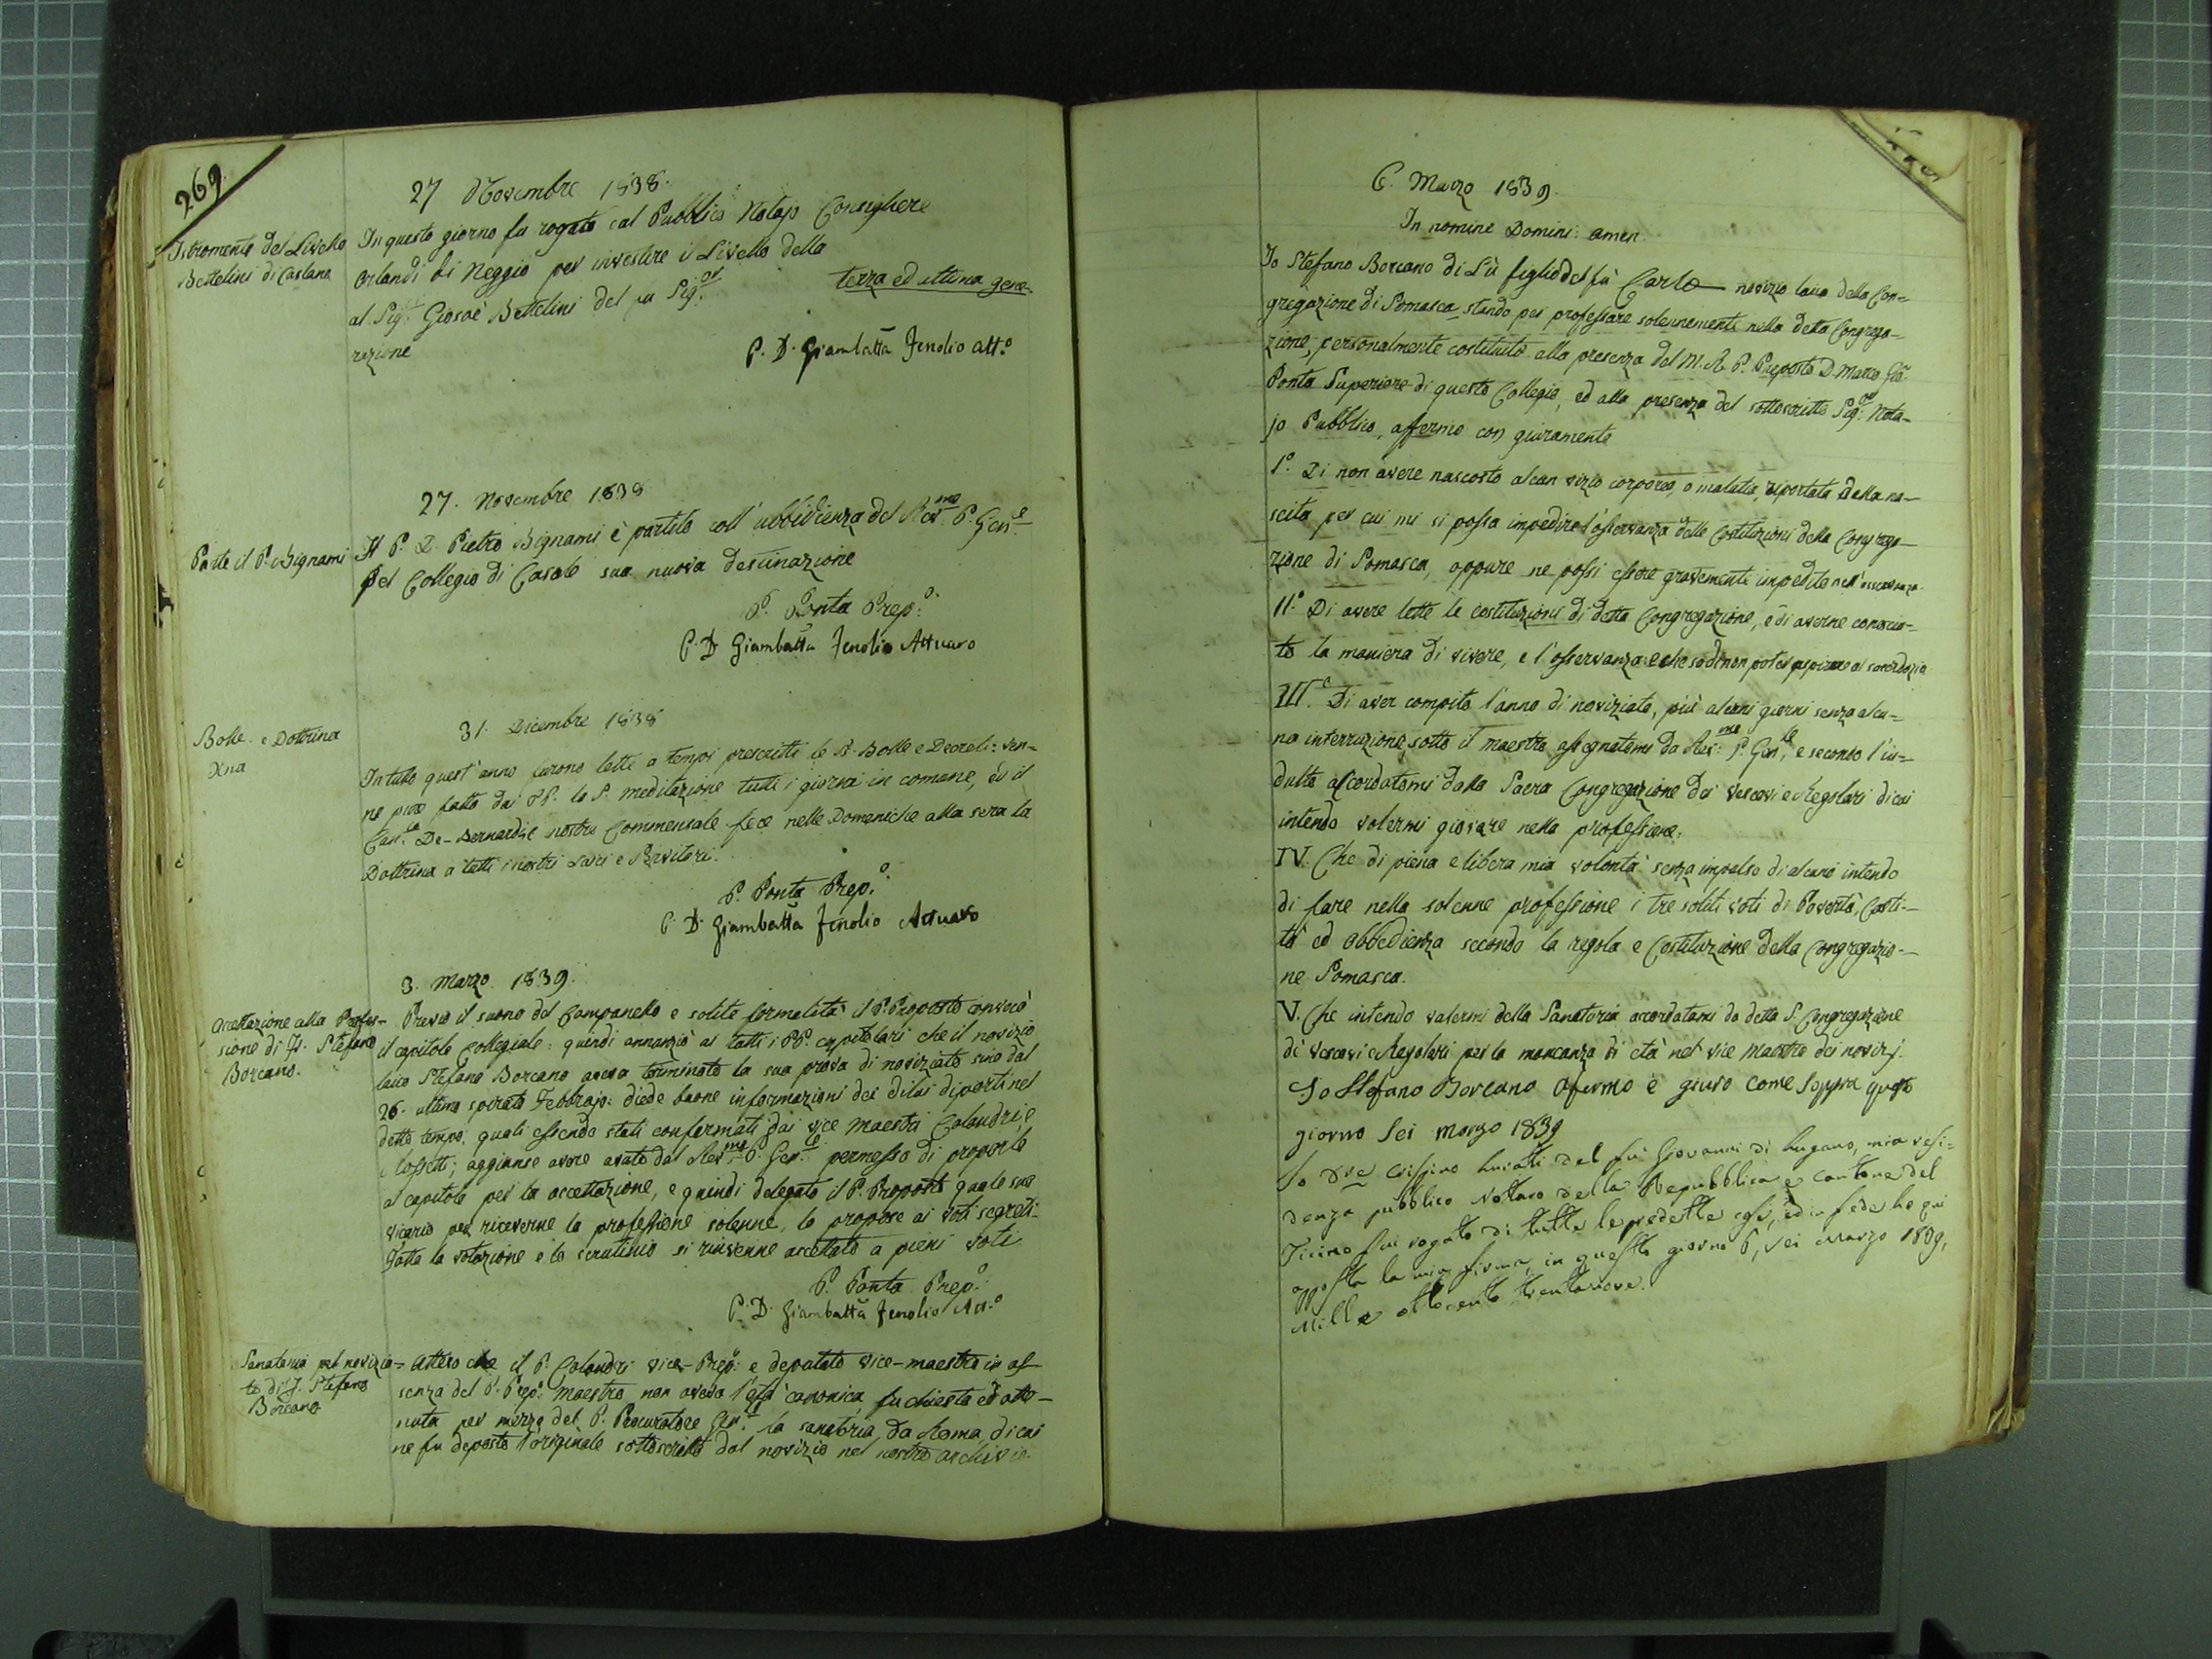 269.
27 Novembre 1838.
Istromento del Livello
Bettelini di Caslano
In questo giorno fu rogato dal Pubblico Notajo Consigliere
Orlandi di Neggio per investire il Livello della
al Sig.r Giosoè Bettelini del fu Sig.or terza ed ultima gene-
razione
P. D. Giambatta Fenolio Att.o
27. Novembre 1838
Parte il P. Bignami
Il P. D. Pietro Bignami è partito coll' ubbidienza del Rev.mo P. Gen.e
pel Collegio di Casale sua nuova destinazione
P. Ponta Prep.o
P. D. Giambatta Fenolio Attuaro
31. Dicembre 1838
Bolle e Dottrina
Xna
In tutto quest' anno furono lette a tempi prescritti le B. Bolle e Decreti: ven-
ne pure fatta dai PP. la S. meditazione tutti i giorni in comune, ed il
Can.co De-Bernardis nostro Commensale fece nelle Domeniche alla sera la
Dottrina a tutti i nostri Laici e Servitori.
P. Ponta Prep.o
P. D. Giambatta Fenolio Attuaro
3. Marzo. 1839.
Accettazione alla Profes-
sione di Fr. Stefano
Borcano.
Previo il suono del Campanello e solite formalità il P. Proposto convocò
il capitolo Collegiale: quindi annunziò ai tutti i PP. capitolari che il novizio
laico Stefano Borcano aveva terminato la sua prova di noviziato sino dal
26. ultimo spirato Febbrajo: diede buone informazioni dei di lui diporti nel
detto tempo, quali essendo stati confermati dai vice Maestri Calandri, e
Rossetti; aggiunse avere avuto dal Rev.mo P. Gen.le permesso di proporlo
al capitolo per la accettazione, e quindi delegato il P. Proposto quale suo
vicario per riceverne la professione solenne, lo propose ai voti segreti-
Fatta la votazione e lo scrutinio si rinvenne accettato a pieni voti
P. Ponta Prep.o
P. D. Giambatta Fenolio Att.o
Sanatoria pel novizia-
to di F. Stefano
Borcano
Atteso che il P. Calandri vice-Prep.o e deputato vice-maestro in as-
senza del P. Prep.o Maestro non aveva l'età canonica, fu chiesta ed otte-
nuta per mezzo del P. Procuratore Gen.le la sanatoria da Roma, di cui
ne fu deposto l'originale sottoscritto dal novizio nel nostro archivio.
6. Marzo 1839.
In nomine Domini: amen.
Io Stefano Borcano di Lù figlio del fù Carlo novizio laico della Con-
gregazione di Somasca stando per professare solennemente nella detta Congrega-
zione, personalmente costituito alla presenza del M. R. P. Preposto D. Marco Gio.
Ponta Superiore di questo Collegio, ed alla presenza del sottoscritto Sig.or Nota-
jo Pubblico, affermo con giuramento
I.o Di non avere nascosto alcun vizio corporeo, o malatia, riportata dalla na-
scita per cui mi si possa impedire l'osservanza delle Costituzioni della Congrega-
zione di Somasca, oppure ne possi essere gravemente impedito nell'osservanza.
II.o Di avere lette le costituzioni di detta Congregazione, e di averne conosciu-
to la maniera di vivere, e l'osservanza: e che so di non poter aspirare al sacerdozio
III.o Di aver compito l'anno di noviziato, più alcuni giorni senza alcu-
na interruzione, sotto il maestro assegnatomi da Rev.mo P. Gen.le, e secondo l'in-
dulto accordatomi dalla Sacra Congregazione dei Vescovi e Regolari di cui
intendo valermi giovare nella professione.
IV. Che di piena e libera mia volontà senza impulso di alcuno intendo
di fare nella solenne professione i trè soliti voti di Povertà, Casti-
tà ed obbedienza secondo la regola e Costituzione della Congregazio-
ne Somasca.
V. Che intendo valermi della Sanatoria accordatami da detta S. Congregazione
de' Vescovi e Regolari per la mancanza di età nel vice Maestro dei novizj.
Io Stefano Borcano afermo è giuro come soppra questo
giorno sei marzo 1839
Io D.re Crispino Luciati del fu Giovanni di Lugano, mia resi-
denza pubblico Nottaro della Repubblica e Cantone del
Ticino fui rogato di tutte le predette cose, ed in fede ho qui
apposta la mia firma, in questo giorno 6, sei Marzo 1839,
mille ottocento trentanove.